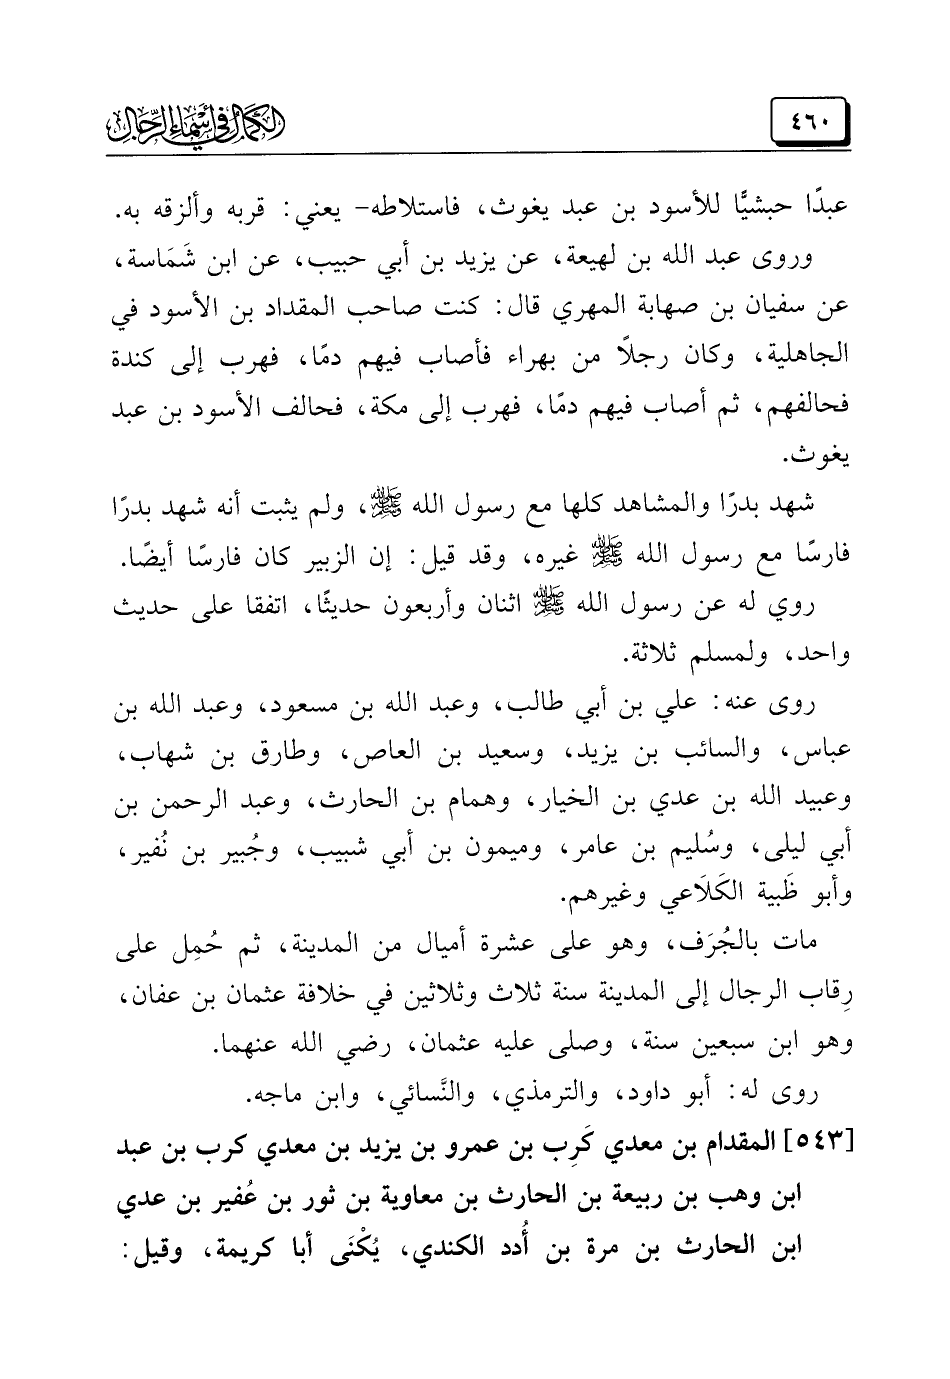 ٤٦٠
الكمال في أسماء الرجال
عبدًا حبشيًّا للأسود بن عبد يغوث، فاستلاطه- يعني: قربه وألزقه به.
وروى عبد الله بن لهيعة، عن يزيد بن أبي حبيب، عن ابن شَمَاسة،
عن سفيان بن صهابة المهري قال: كنت صاحب المقداد بن الأسود في
الجاهلية، وكان رجلًا من بهراء فأصاب فيهم دمًا، فهرب إلى كندة
فحالفهم، ثم أصاب فيهم دمًا، فهرب إلى مكة، فحالف الأسود بن عبد
يغوث.
شهد بدرًا والمشاهد كلها مع رسول الله ﷺ، ولم يثبت أنه شهد بدرًا
فارسًا مع رسول الله ﷺ غيره، وقد قيل: إن الزبير كان فارسًا أيضًا.
روي له عن رسول الله ﷺ اثنان وأربعون حديثًا، اتفقا على حديث
واحد، ولمسلم ثلاثة.
روى عنه: علي بن أبي طالب، وعبد الله بن مسعود، وعبد الله بن
عباس، والسائب بن يزيد، وسعيد بن العاص، وطارق بن شهاب،
وعبيد الله بن عدي بن الخيار، وهمام بن الحارث، وعبد الرحمن بن
أبي ليلى، وسُليم بن عامر، وميمون بن أبي شبيب، وجُبير بن نُفير،
وأبو ظَبية الكَلَاعي وغيرهم.
مات بالجُرَف، وهو على عشرة أميال من المدينة، ثم حُمِل على
رِقاب الرجال إلى المدينة سنة ثلاث وثلاثين في خلافة عثمان بن عفان،
وهو ابن سبعين سنة، وصلى عليه عثمان، رضي الله عنهما.
روى له: أبو داود، والترمذي، والنَّسائي، وابن ماجه.
[٥٤٣] المقدام بن معدي كَرِب بن عمرو بن يزيد بن معدي كرب بن عبد
ابن وهب بن ربيعة بن الحارث بن معاوية بن ثور بن عُفير بن عدي
ابن الحارث بن مرة بن أُدد الكندي، يُكْنَى أبا كريمة، وقيل: